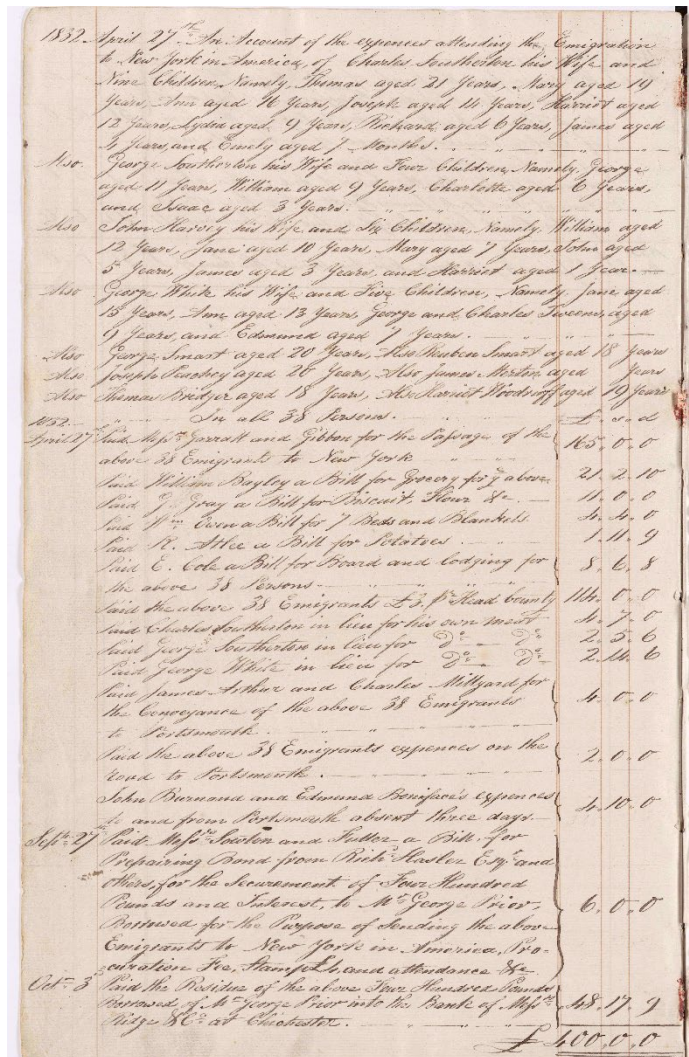 1832. April 27th. An Account of the expences attending the, Emigration
to New York in America, of Charles Southerton his Wife and
Nine Children, Namely, Thomas aged 21 Years, Mary aged 19
Years, Ann aged 16 Years, Joseph aged 14 Years, Harriot aged
12 Years, Lydia aged 9 Years, Richard aged 6 Years, James aged
4 Years, and Emely aged 7 Months.
Also George Southerton his Wife and Four Children, Namely, George
aged 11 Years, William aged 9 Years, Charlotte aged 6 Years,
and Isaac aged 3 Years.
Also John Harvey his Wife and Six Children, Namely, William aged
12 Years, Jane aged 10 Years, Mary aged 7 Years, John aged
5 Years, James aged 3 Years, and Harriot aged 1 Year.
Also George White his Wife and Five Children, Namely, Jane aged
15 Years, Ann aged 13 Years, George and Charles Tweens, aged
9 Years, and Edmund aged 7 Years.
Also George Smart aged 20 Years, Also Reuben Smart aged 18 Years
Also Joseph Peachey aged 26 Years, Also James Merton, aged Years
Also Thomas Bridger aged 18 Years, Also Harriot Woodruff aged 19 Years
1832. In all 38 Persons. £. s. d
April 27th Paid Messrs Garratt and Gibbon for the Passage of the
above 38 Emigrants to New York 165. 0. 0
Paid William Bayley a Bill for Grocery for ye above 21. 2. 10
Paid G. Gray a Bill for Biscuit, Flour &c. 11. 0. 0
Paid Wm Ewen a Bill for 7 Beds and Blankets 4. 4. 0
Paid R. Atlee a Bill for Potatoes 1. 11. 9
Paid E. Cole a Bill for Board and lodging for
the above 38 Persons 8. 6. 8
Paid the above 38 Emigrants £3. pr Head County 114. 0. 0
Paid Charles Southerton in lieu for his own meat 4. 7. 0
Paid George Southerton in lieu for Do Do 2. 5. 6
Paid George White in lieu for Do Do 2. 14. 6
Paid James Arthur and Charles Millyard for
the Conveyance of the above 38 Emigrants
to Portsmouth. 4. 0. 0
Paid the above 38 Emigrants expences on the
road to Portsmouth. 2. 0. 0
John Burnand and Edmund Boniface's expences
to and from Portsmouth absent three days 4. 10. 0
Septr 27th Paid Messrs Sowton and Fuller a Bill for
Prepairing Bond from Richd Hasler Esqr and
others, for the Securement of Four Hundred
Pounds and Interest, to Mr George Prior,
Borrowed for the Purpose of sending the above
Emigrants to New York in America, Pro-
curation Fee, Stamp £4, and attendance &c 6. 0. 0
Octr 3 Paid the Residue of the above Four Hundred Pounds
Borrowed of Mr George Prior into the Bank of Messrs
Ridge & Co. at Chichester. 48. 17. 9
£ 400. 0. 0